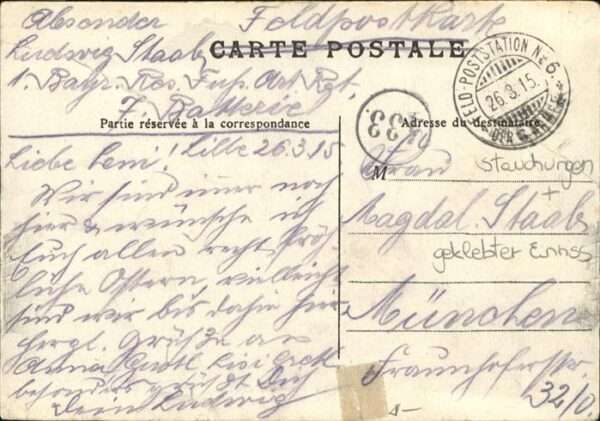 Absender Feldpostkarte
Ludwig Staab
CARTE POSTALE
1. Bayr. Res. Fuß. Art. Rgt.
7. Batterie
FELD-POSTSTATION No 6.
26.3.15.
33
Partie réservée à la correspondance
Adresse du destinataire
Liebe Leni! Lille 26.3.15
Wir sind imer noch
hier & wünsche ich
Euch allen recht frö-
liche Ostern, vielleicht
sind wir bis dahin hier
Grüße an
Anna Lisi
besonders grüßt Dich
Dein Ludwig
M
Frau
Stauchungen
+
Magdal. Staab
geklebter Einriss
München
Fraunhoferstr.
32/0.